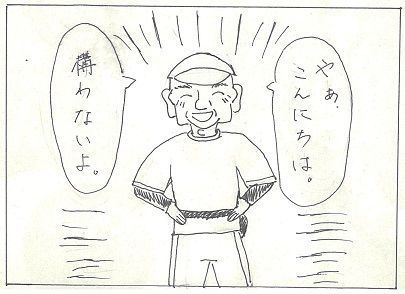 やぁ、
こんにちは。
構わないよ。